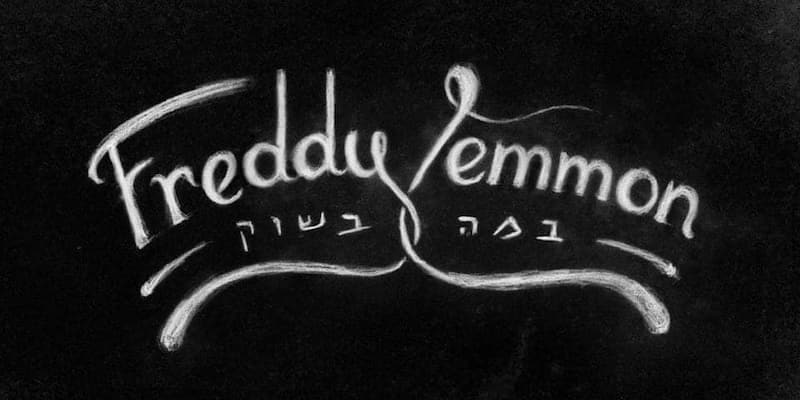 Freddy Lemmon
במה בשוק